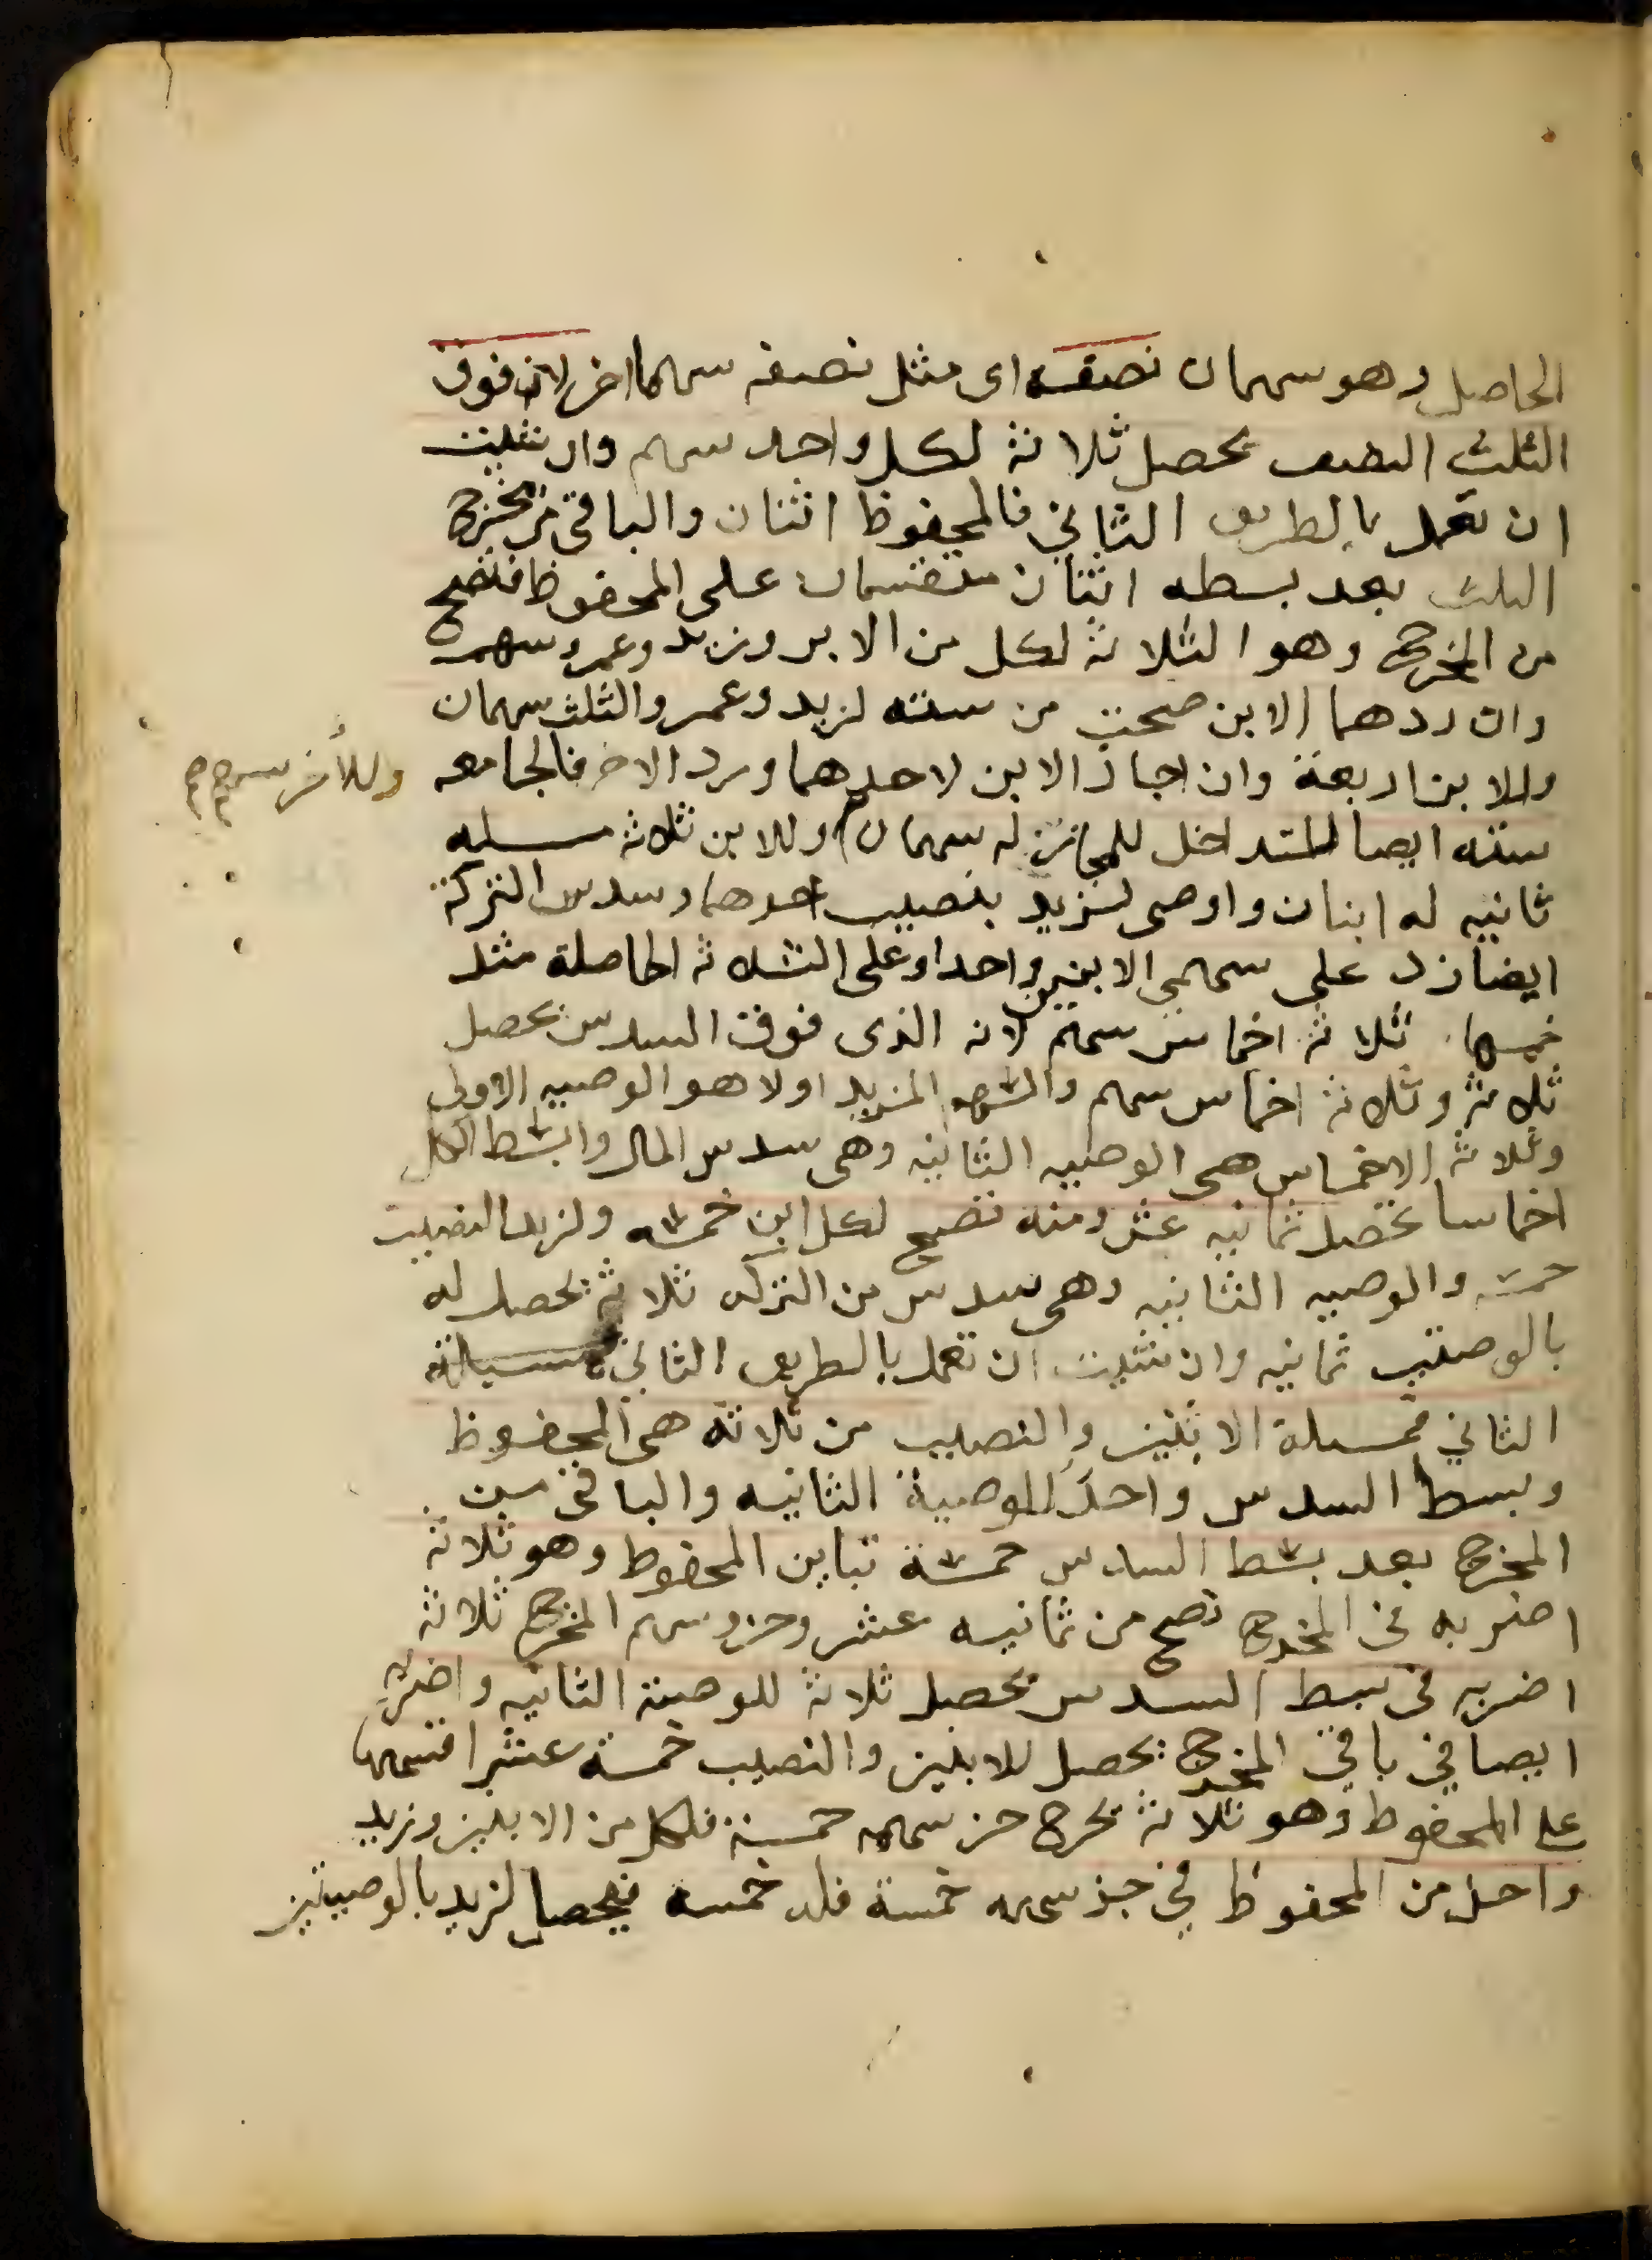 الحاصل وهو سهمان نصفه اى مثل نصفه سهما اخر لان فوق
الثلث النصف يحصل ثلاثة لكل واحد سهم وان شيت
ان تعمل بالطريق الثاني فالمحفوظ اثنان والباقي من مخرج
الثلث بعد بسطه اثنان منقسمان على المحفوظ فتصح
من المخرج وهو الثلاثة لكل من الابن وزيد وعمرو سهم
وان ردهما الابن صحت من ستة لزيد وعمرو الثلث سهمان
وللابن اربعة وان اجاز الابن لاحدهما ورد الاخر فالجامعه
ستة ايضا للتداخل للمجاز له سهمان وللابن ثلاثة مسلة
وللأخر سهم صح
ثانيه له ابنان واوصى لزيد بنصيب احدهما وسدس التركة
ايضا زد على سهمي الابنين واحدا وعلى الثلاثة الحاصلة مثل
خمسها ثلاثة اخماس سهم لانه الذى فوق السدس يحصل
ثلاثة وثلاثة اخماس سهم والسهم المزيد اولا هو الوصيه الاولى
وثلاثة الاخماس هى الوصيه الثانيه وهى سدس المال وابسط الكل
اخماسا تحصل ثمانيه عشر ومنه تصح لكل ابن خمسه ولزيد النصيب
خمسة والوصيه الثانيه وهى سدس من التركه ثلاثة يحصل له
بالوصيتين ثمانيه وان شيت ان تعمل بالطريق الثاني
الثاني فمسلة الابنين والنصيب من ثلاثة هى المحفوظ
وبسط السدس واحد للوصية الثانيه والباقى من
المخرج بعد بسط السدس خمسة تباين المحفوظ وهو ثلاثة
اضربه فى المخرج تصح من ثمانيه عشر وجزو سهم المخرج ثلاثة
اضربه فى بسط السدس يحصل ثلاثة للوصية الثانيه واضربه
ايضا في باقي المخرج يحصل للابنين والنصيب خمسة عشر اقسمها
على المحفوظ وهو ثلاثة يخرج جز سهمه خمسة فلكل من الابنين وزيد
واحد من المحفوظ في جز سهمه خمسة فله خمسه فيحصل لزيد بالوصيتين